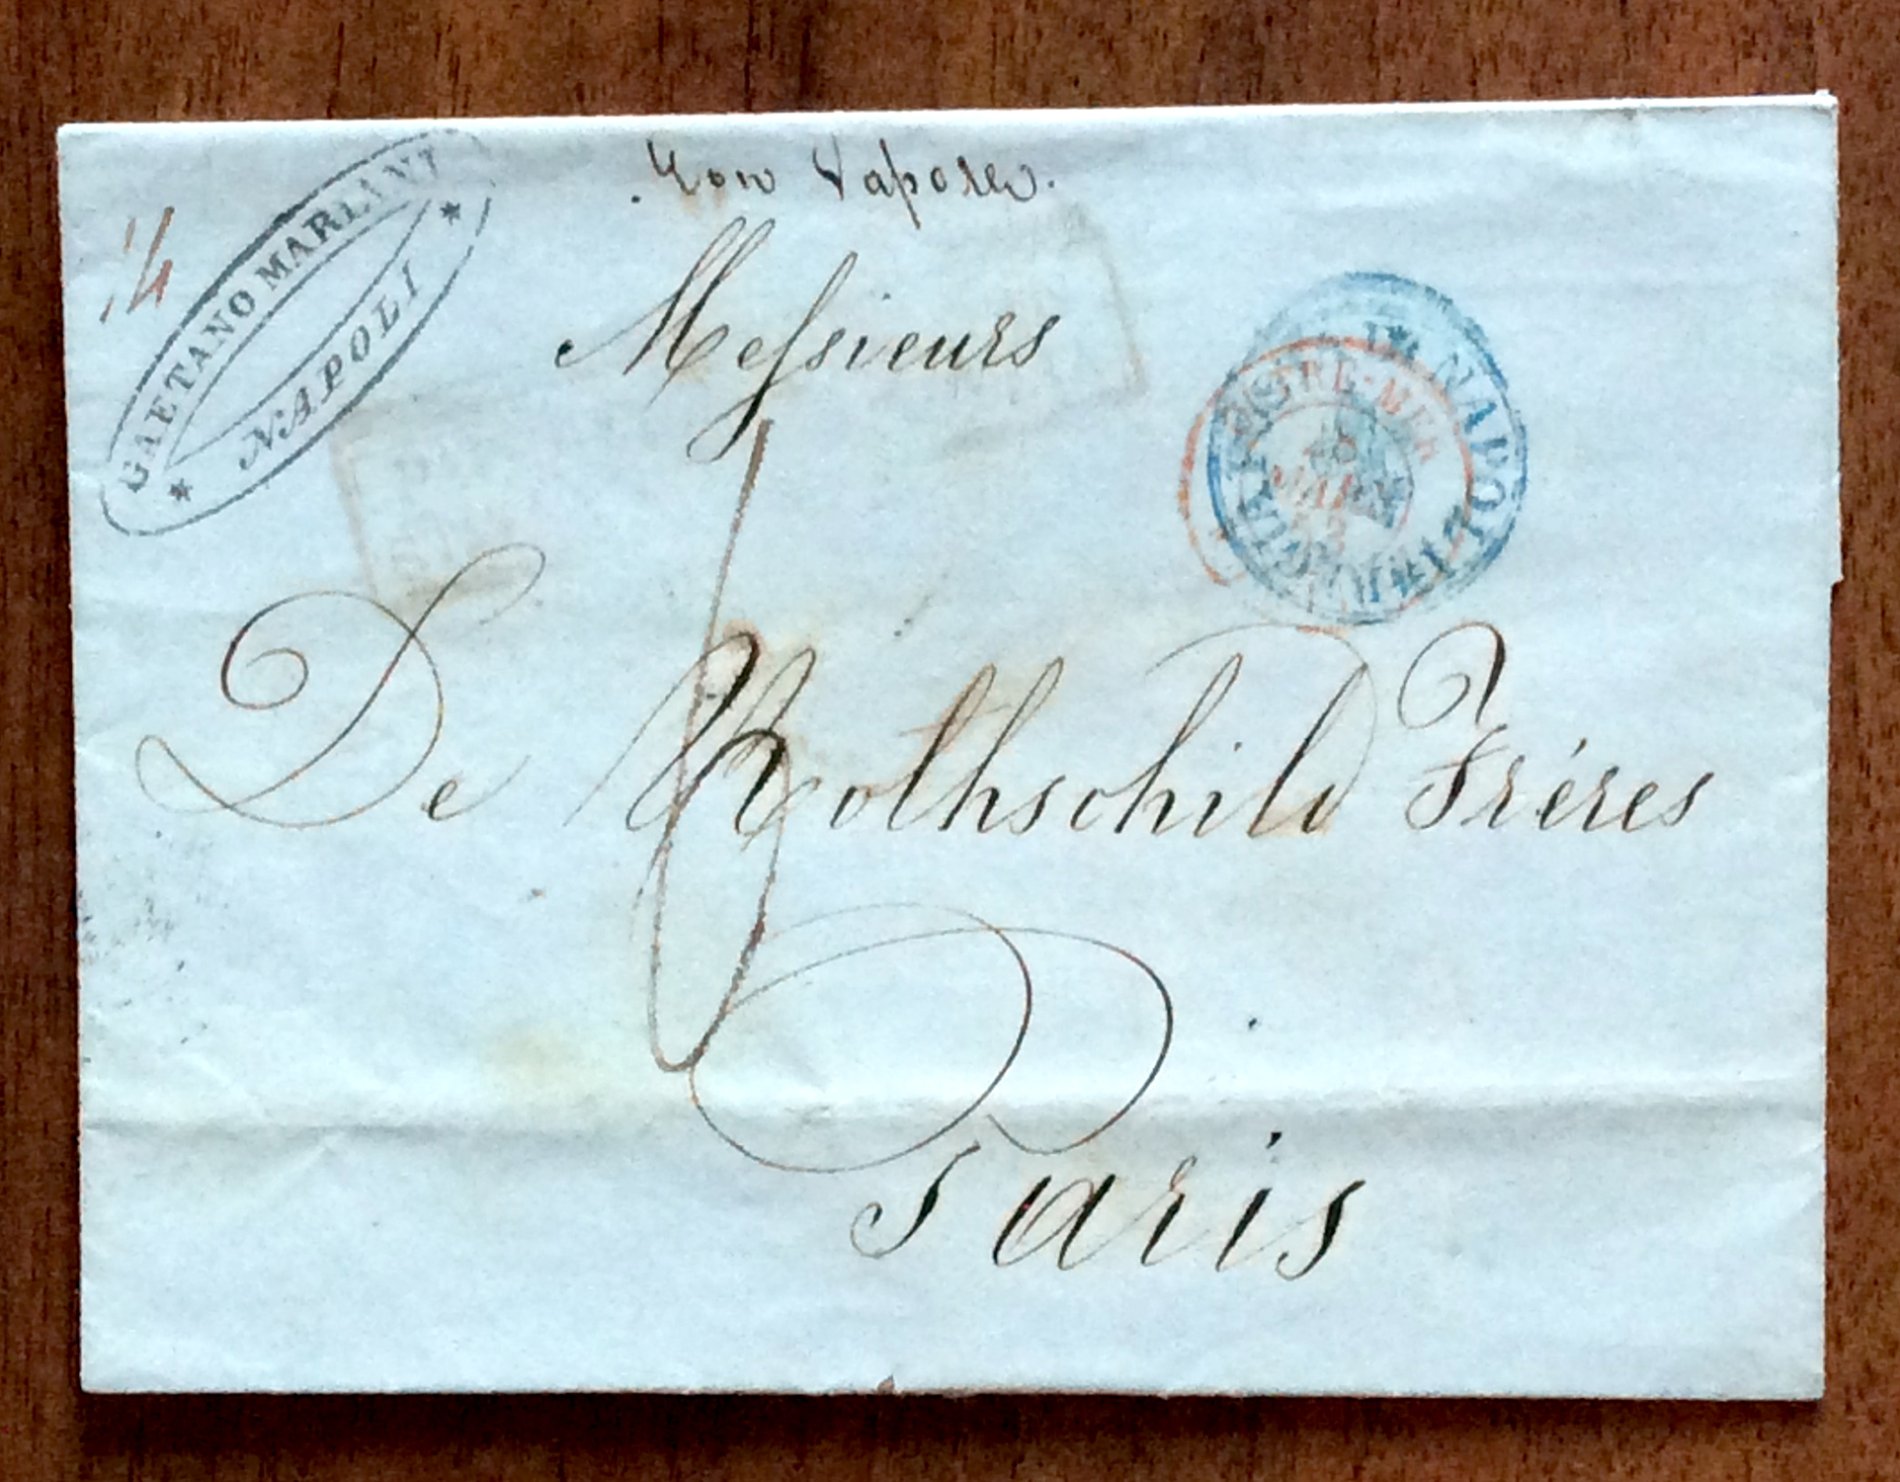 Con Vapore.
GAETANO MARIANI
NAPOLI
Messieurs
NAPOLI
De Rothschild Fréres
6
Paris